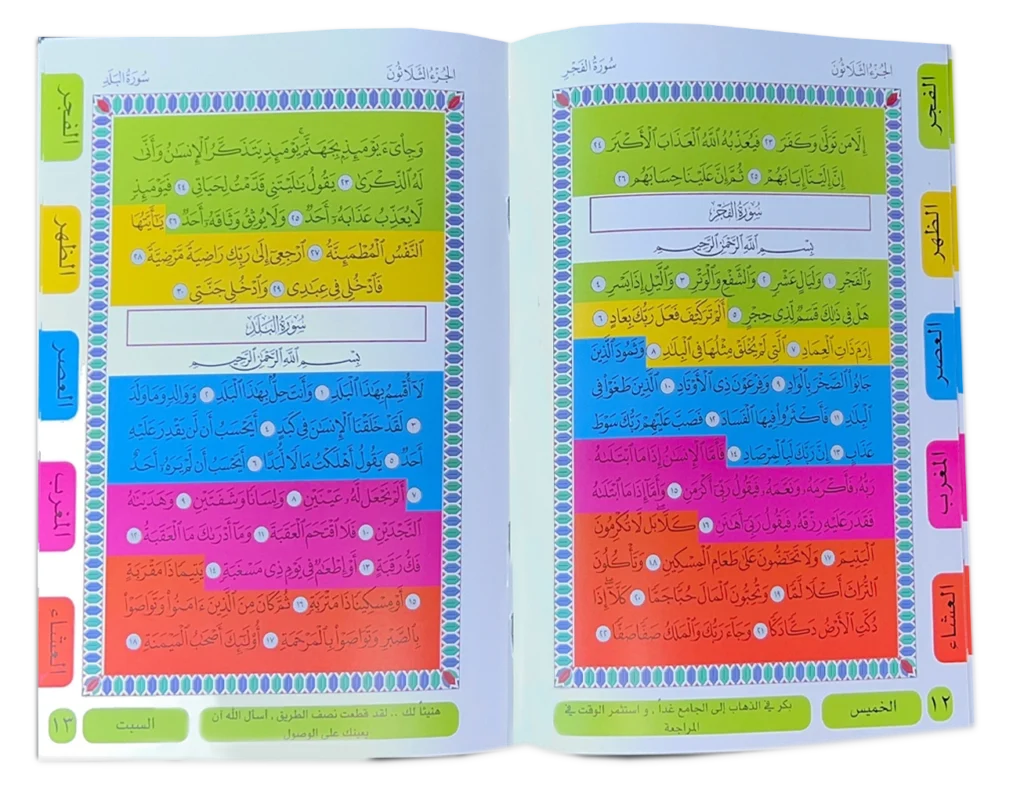 الجزء الثلاثون
سورة الفجر
إِلَّا مَن تَوَلَّىٰ وَكَفَرَ ٢٣ فَيُعَذِّبُهُ ٱللَّهُ ٱلْعَذَابَ ٱلْأَكْبَرَ ٢٤
إِنَّ إِلَيْنَآ إِيَابَهُمْ ٢٥ ثُمَّ إِنَّ عَلَيْنَا حِسَابَهُم ٢٦
سُورَةُ الفَجْرِ
بِسْمِ ٱللَّهِ ٱلرَّحْمَٰنِ ٱلرَّحِيمِ
وَٱلْفَجْرِ ١ وَلَيَالٍ عَشْرٍ ٢ وَٱلشَّفْعِ وَٱلْوَتْرِ ٣ وَٱلَّيْلِ إِذَا يَسْرِ ٤
هَلْ فِى ذَٰلِكَ قَسَمٌ لِّذِى حِجْرٍ ٥ أَلَمْ تَرَ كَيْفَ فَعَلَ رَبُّكَ بِعَادٍ ٦
إِرَمَ ذَاتِ ٱلْعِمَادِ ٧ ٱلَّتِى لَمْ يُخْلَقْ مِثْلُهَا فِى ٱلْبِلَٰدِ ٨ وَثَمُودَ ٱلَّذِينَ
جَابُوا۟ ٱلصَّخْرَ بِٱلْوَادِ ٩ وَفِرْعَوْنَ ذِى ٱلْأَوْتَادِ ١٠ ٱلَّذِينَ طَغَوْا۟ فِى
ٱلْبِلَٰدِ ١١ فَأَكْثَرُوا۟ فِيهَا ٱلْفَسَادَ ١٢ فَصَبَّ عَلَيْهِمْ رَبُّكَ سَوْطَ
عَذَابٍ ١٣ إِنَّ رَبَّكَ لَبِٱلْمِرْصَادِ ١٤ فَأَمَّا ٱلْإِنسَٰنُ إِذَا مَا ٱبْتَلَىٰهُ
رَبُّهُۥ فَأَكْرَمَهُۥ وَنَعَّمَهُۥ فَيَقُولُ رَبِّىٓ أَكْرَمَنِ ١٥ وَأَمَّآ إِذَا مَا ٱبْتَلَىٰهُ
فَقَدَرَ عَلَيْهِ رِزْقَهُۥ فَيَقُولُ رَبِّىٓ أَهَٰنَنِ ١٦ كَلَّا ۖ بَل لَّا تُكْرِمُونَ
ٱلْيَتِيمَ ١٧ وَلَا تَحَٰٓضُّونَ عَلَىٰ طَعَامِ ٱلْمِسْكِينِ ١٨ وَتَأْكُلُونَ
ٱلتُّرَاثَ أَكْلًا لَّمًّا ١٩ وَتُحِبُّونَ ٱلْمَالَ حُبًّا جَمًّا ٢٠ كَلَّآ إِذَا
دُكَّتِ ٱلْأَرْضُ دَكًّا دَكًّا ٢١ وَجَآءَ رَبُّكَ وَٱلْمَلَكُ صَفًّا صَفًّا ٢٢
الفجر
الظهر
العصر
المغرب
العشاء
١٢
الخميس
بكر في الذهاب إلى الجامع غداً , و استثمر الوقت في
المراجعة
الجزء الثلاثون
سورة البلد
وَجِا۟ىٓءَ يَوْمَئِذٍۭ بِجَهَنَّمَ ۚ يَوْمَئِذٍ يَتَذَكَّرُ ٱلْإِنسَٰنُ وَأَنَّىٰ
لَهُ ٱلذِّكْرَىٰ ٢٣ يَقُولُ يَٰلَيْتَنِى قَدَّمْتُ لِحَيَاتِى ٢٤ فَيَوْمَئِذٍ
لَّا يُعَذِّبُ عَذَابَهُۥٓ أَحَدٌ ٢٥ وَلَا يُوثِقُ وَثَاقَهُۥٓ أَحَدٌ ٢٦ يَٰٓأَيَّتُهَا
ٱلنَّفْسُ ٱلْمُطْمَئِنَّةُ ٢٧ ٱرْجِعِىٓ إِلَىٰ رَبِّكِ رَاضِيَةً مَّرْضِيَّةً ٢٨
فَٱدْخُلِى فِى عِبَٰدِى ٢٩ وَٱدْخُلِى جَنَّتِى ٣٠
سُورَةُ البَلَدِ
بِسْمِ ٱللَّهِ ٱلرَّحْمَٰنِ ٱلرَّحِيمِ
لَآ أُقْسِمُ بِهَٰذَا ٱلْبَلَدِ ١ وَأَنتَ حِلٌّۢ بِهَٰذَا ٱلْبَلَدِ ٢ وَوَالِدٍ وَمَا وَلَدَ
٣ لَقَدْ خَلَقْنَا ٱلْإِنسَٰنَ فِى كَبَدٍ ٤ أَيَحْسَبُ أَن لَّن يَقْدِرَ عَلَيْهِ
أَحَدٌ ٥ يَقُولُ أَهْلَكْتُ مَالًا لُّبَدًا ٦ أَيَحْسَبُ أَن لَّمْ يَرَهُۥٓ أَحَدٌ
٧ أَلَمْ نَجْعَل لَّهُۥ عَيْنَيْنِ ٨ وَلِسَانًا وَشَفَتَيْنِ ٩ وَهَدَيْنَٰهُ
ٱلنَّجْدَيْنِ ١٠ فَلَا ٱقْتَحَمَ ٱلْعَقَبَةَ ١١ وَمَآ أَدْرَىٰكَ مَا ٱلْعَقَبَةُ ١٢
فَكُّ رَقَبَةٍ ١٣ أَوْ إِطْعَٰمٌ فِى يَوْمٍ ذِى مَسْغَبَةٍ ١٤ يَتِيمًا ذَا مَقْرَبَةٍ
١٥ أَوْ مِسْكِينًا ذَا مَتْرَبَةٍ ١٦ ثُمَّ كَانَ مِنَ ٱلَّذِينَ ءَامَنُوا۟ وَتَوَاصَوْا۟
بِٱلصَّبْرِ وَتَوَاصَوْا۟ بِٱلْمَرْحَمَةِ ١٧ أُو۟لَٰٓئِكَ أَصْحَٰبُ ٱلْمَيْمَنَةِ ١٨
الفجر
الظهر
العصر
المغرب
العشاء
السبت
١٣
هنيئاً لك .. لقد قطعت نصف الطريق , أسأل الله أن
يعينك على الوصول